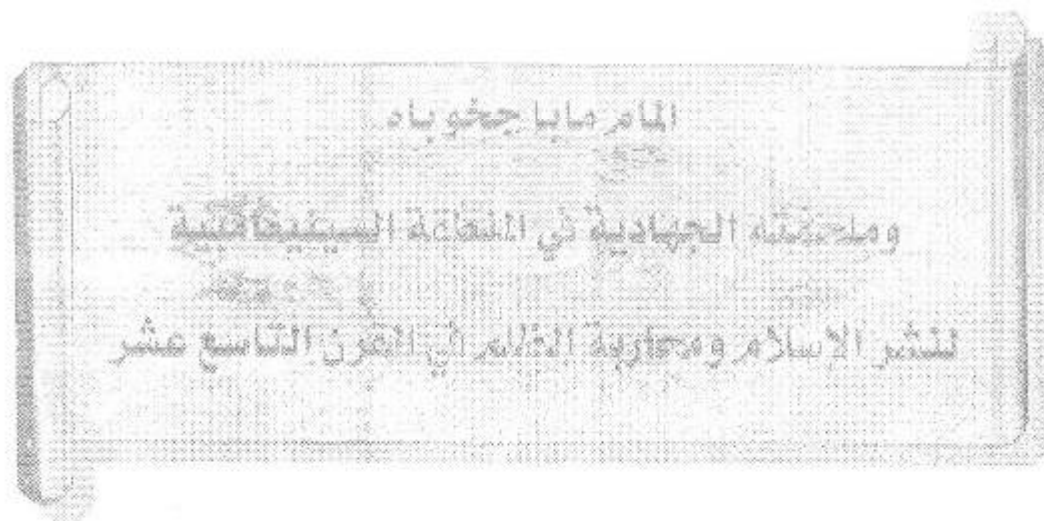 المام مابا جخوباه
وملحمته الجهادية في المنطقة السينيغامبية
لنشر الإسلام ومحاربة الظلم في القرن التاسع عشر